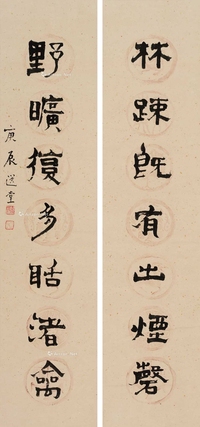 林疎既有出煙磬
野曠復多聒渚禽
庚辰選堂